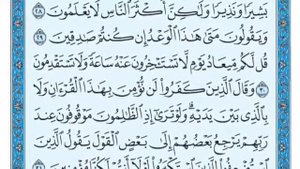 بَشِيرًا وَنَذِيرًا وَلَٰكِنَّ أَكْثَرَ النَّاسِ لَا يَعْلَمُونَ ٢٨
وَيَقُولُونَ مَتَىٰ هَٰذَا الْوَعْدُ إِن كُنتُمْ صَٰدِقِينَ ٢٩
قُل لَّكُم مِّيعَادُ يَوْمٍ لَّا تَسْتَـْٔخِرُونَ عَنْهُ سَاعَةً وَلَا تَسْتَقْدِمُونَ
٣٠ وَقَالَ الَّذِينَ كَفَرُوا لَن نُّؤْمِنَ بِهَٰذَا الْقُرْءَانِ وَلَا
بِالَّذِي بَيْنَ يَدَيْهِ وَلَوْ تَرَىٰ إِذِ الظَّٰلِمُونَ مَوْقُوفُونَ عِندَ
رَبِّهِمْ يَرْجِعُ بَعْضُهُمْ إِلَىٰ بَعْضٍ الْقَوْلَ يَقُولُ الَّذِينَ